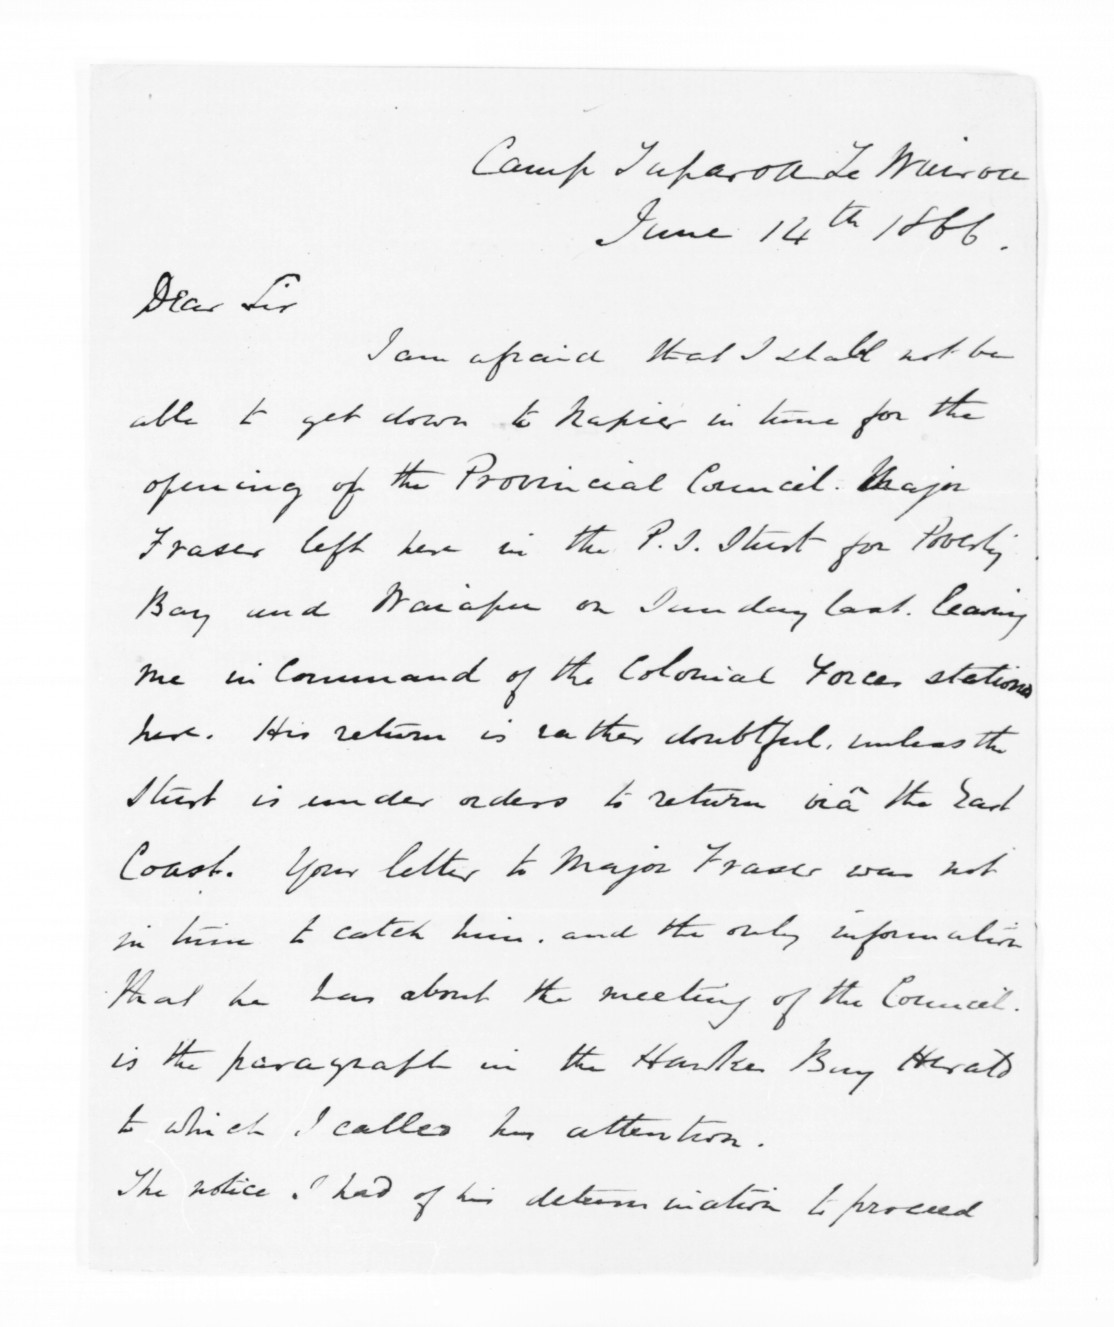 Camp Tuparoa Te Wairoa
June 14th 1866.
Dear Sir
I am afraid that I shall not be
able to get down to Napier in time for the
opening of the Provincial Council. Major
Fraser left here in the P.S. Sturt for Poverty
Bay and Waiapu on Sunday last. leaving
me in Command of the Colonial Forces stationed
here. His return is rather doubtful, unless the
Sturt is under orders to return viâ the East
Coast. Your letter to Major Fraser was not
in time to catch him. and the only information
that he has about the meeting of the Council.
is the paragraph in the Hawkes Bay Herald
to which I called his attention.
The notice I had of his determination to proceed